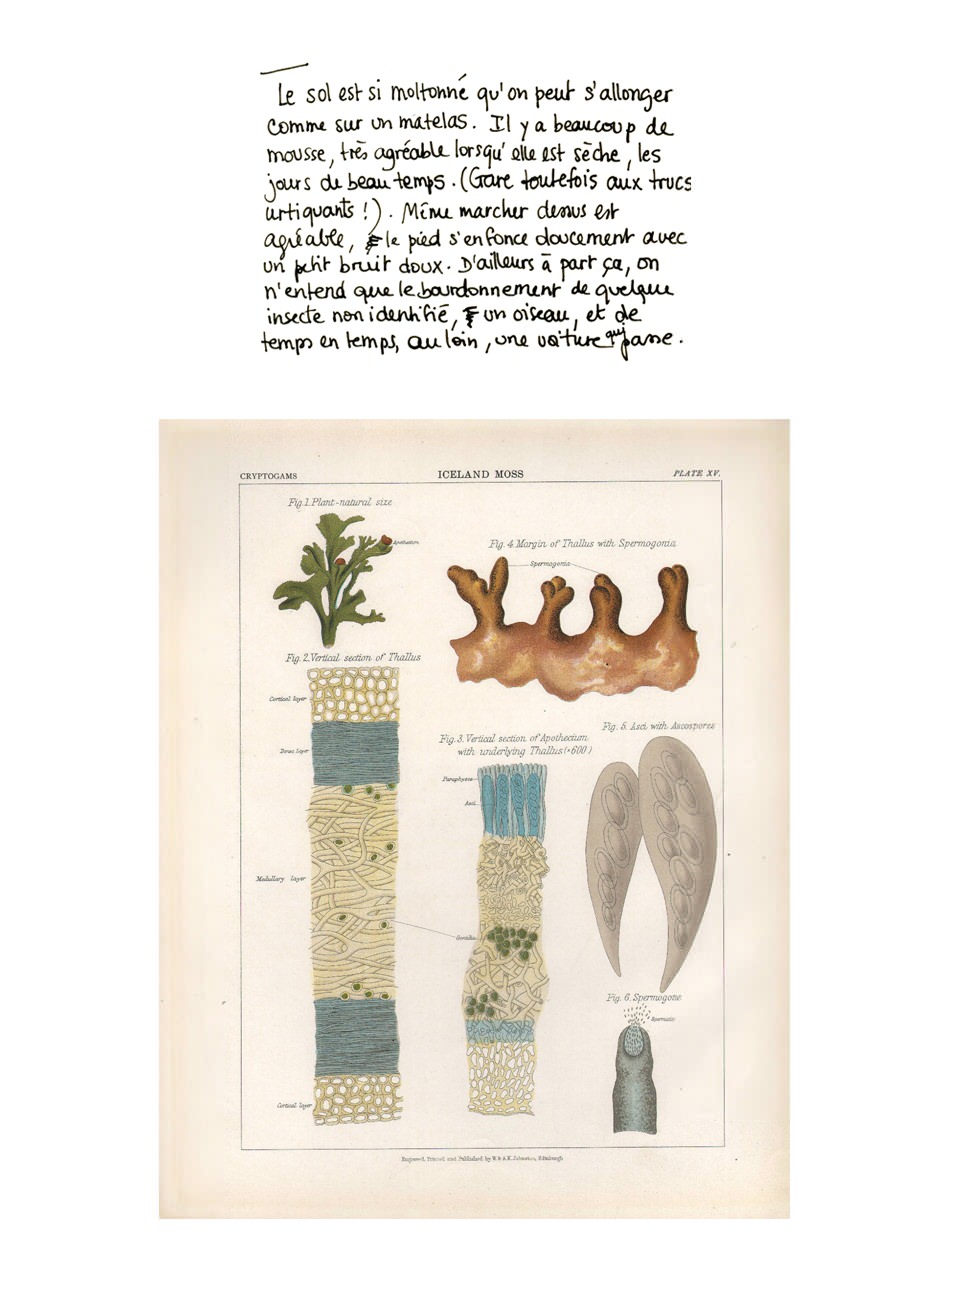 Le sol est si moltonné qu'on peut s'allonger
comme sur un matelas. Il y a beaucoup de
mousse, très agréable lorsqu'elle est sèche, les
jours de beau temps. (Gare toutefois aux trucs
urtiquants !). Même marcher dessus est
agréable, le pied s'enfonce doucement avec
un petit bruit doux. D'ailleurs à part ça, on
n'entend que le bourdonnement de quelque
insecte non identifié, un oiseau, et de
temps en temps, au loin, une voiture qui passe.
CRYPTOGAMS
ICELAND MOSS
PLATE XV.
Fig. 1. Plant-natural size
Apothecium
Fig. 4. Margin of Thallus with Spermogonia
Spermogonia
Fig. 2. Vertical section of Thallus
Cortical layer
Dense layer
Medullary layer
Cortical layer
Fig. 3. Vertical section of Apothecium
with underlying Thallus (×600)
Paraphyses
Asci
Gonidia
Fig. 5. Asci with Ascospores
Fig. 6. Spermogone
Spermatia
Engraved, Printed and Published by W. & A.K. Johnston, Edinburgh